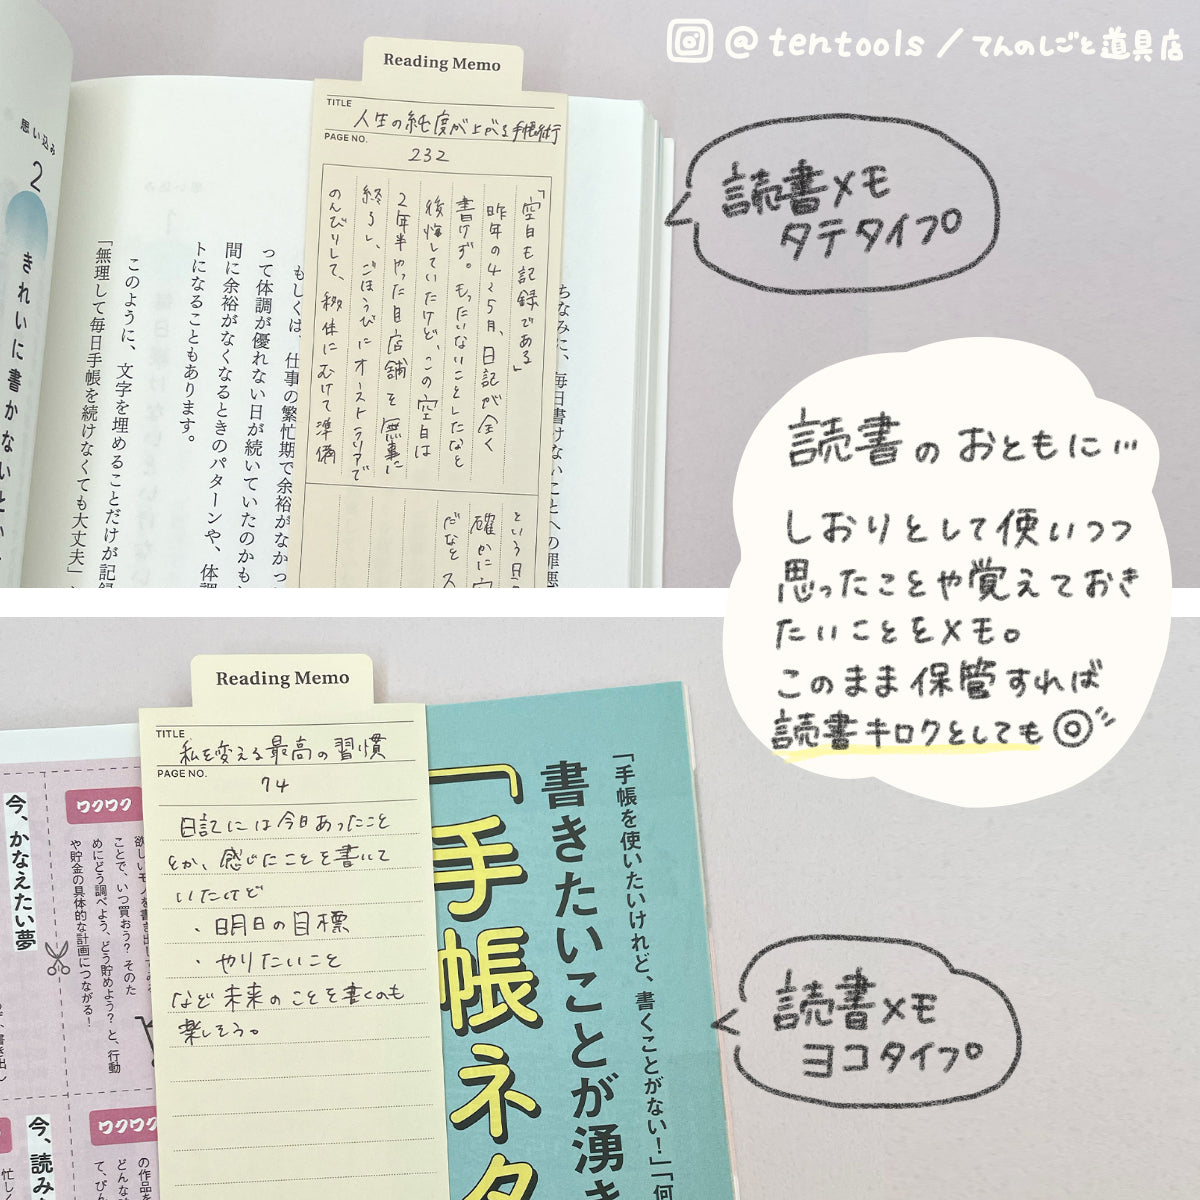 @tentools/てんのしごと道具店
Reading Memo
TITLE
人生の純度が上がる手帳術
PAGE NO.
232
「空白も記録である」
昨年の4〜5月、日記が全く
書けず。もったいないことしたなと
後悔していたけど、この空白は
2年半やった目店舗を無事に
終らし、ごほうびにオーストラリアで
のんびりして、移住にむけて準備
という
確かに
だなと
思い込み
2
きれいに書かないといけ
ちなみに、毎日書けないことへの罪悪
もしくは、仕事の繁忙期で余裕がなかっ
って体調が優れない日が続いていたのかも
間に余裕がなくなるときのパターンや、体調
トになることもあります。
このように、文字を埋めることだけが記録
「無理して毎日手帳を続けなくても大丈夫」
読書メモ
タテタイプ
読書のおともに…
しおりとして使いつつ
思ったことや覚えておき
たいことをメモ。
このまま保管すれば
読書キロクとしても◎
Reading Memo
TITLE
私を変える最高の習慣
PAGE NO.
74
日記には今日あったこと
とか、感じたことを書いて
いたけど
・明日の目標
・やりたいこと
など未来のことを書くのも
楽しそう。
「手帳を使いたいけれど、書くことがない!」「何
書きたいことが湧き
「手帳ネタ
今、かなえたい夢
ワクワク
欲しいモノを書き出してみる
ことで、いつ買おう? そのた
めにどう調べよう、どう貯めよう? と、行動
や貯金の具体的な計画につながる!
書き出し
今、読み
ワクワク
の作品を
どんな
て、ぴん
忙しく
読書メモ
ヨコタイプ